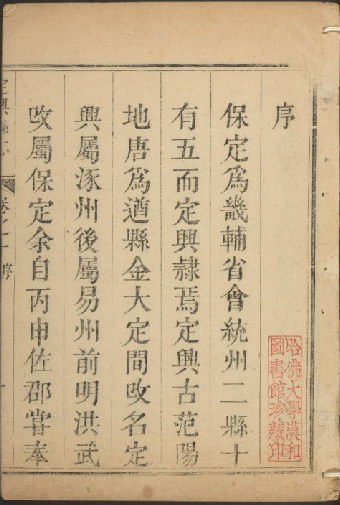 序
保定為畿輔省會統州二縣十
有五而定興隸焉定興古范陽
地唐為遒縣金大定間改名定
興屬涿州後屬易州前明洪武
改屬保定余自丙申佐郡甞奉
定興縣志
卷之一
序
哈佛大學漢和
圖書館珍藏印